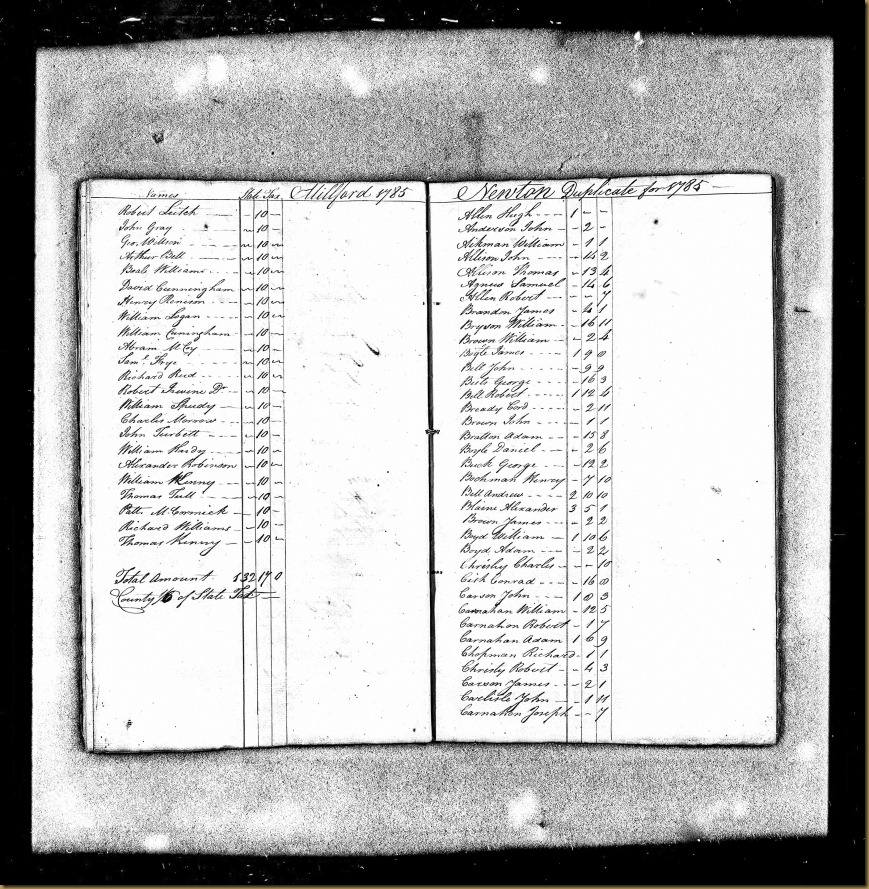 Names State Tax Millford 1785
Robert Leitch - 10 -
John Gray - 10 -
Geo. Willson - 10 -
Arthur Bell - 10 -
Beale William - 10 -
David Cunningham - 10 -
Henry Renison - 10 -
William Logan - 10 -
William Cuningham - 10 -
Abram McCoy - 10 -
Saml. Frye - 10 -
Richard Reed - 10 -
Robert Irwine Dr - 10 -
William Speedy - 10 -
Charles Morrow - 10 -
John Turbett - 10 -
William Hardy - 10 -
Alexander Robinson - 10 -
William Kenny - 10 -
Thomas Tull - 10 -
Patt. McCormick - 10 -
Richard Williams - 10 -
Thomas Kenny - 10 -
Total Amount 132 17 0
County 1/6 of State Tax
Newton Duplicate for 1785
Allen Hugh 1 - -
Anderson John - 2 -
Aikman William - 1 1
Allison John - 4 2
Allison Thomas - 13 4
Agnew Samuel - 14 6
Allen Robert - - 7
Brandon James - 4 1
Bryson William - 16 11
Brown William - 2 4
Bogle James 1 9 0
Bell John - 9 9
Bells George - 16 3
Bell Robert 1 12 4
Bready Cord - 2 11
Brown John - 1 1
Bratton Adam - 15 8
Bogle Daniel - 2 6
Buck George - 12 2
Bochman Henry - 7 10
Bell Andrew 2 10 10
Blaine Alexander 3 5 1
Brown James - 2 2
Boyd William 1 10 6
Boyd Adam - 2 2
Chrisly Charles - - 10
Cish Conrad - 16 0
Carson John 1 0 3
Carnahan William - 12 5
Carnahan Robert - 1 7
Carnahan Adam 1 6 9
Chopman Richard - 1 1
Chrisly Robert - 4 3
Carson James - 2 1
Carlisle John - 1 11
Carnahan Joseph - - 7